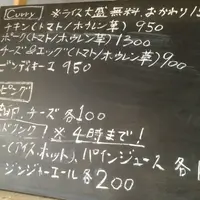 Curry ※ライス大盛無料、おかわり
チキン(トマト/ホウレン草) 950
ポーク(トマト/ホウレン草) 1300
チーズ&エッグ(トマト/ホウレン草) 900
950
ピング
チーズ 各100
ドリンク! ※4時まで!
(アイス、ホット)、パインジュース 各
ジンジャーエール各200